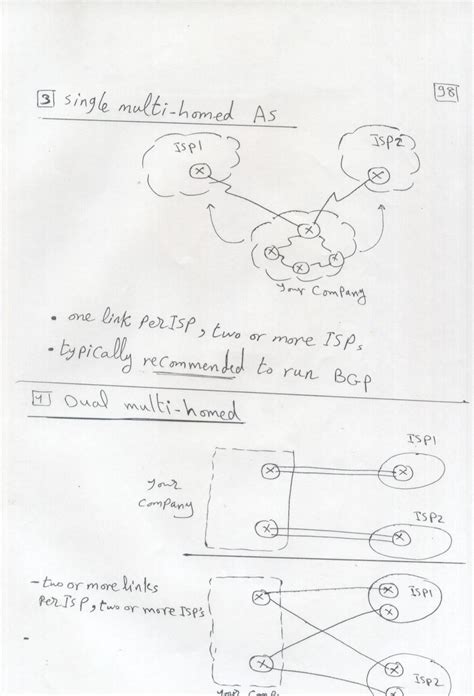 98
3 single multi-homed AS
ISP1
ISP2
Your Company
• one link per ISP, two or more ISPs
• typically recommended to run BGP
4 Dual multi-homed
ISP1
Your
Company
ISP2
- two or more links
per ISP, two or more ISPs
ISP1
ISP2
Your Comp